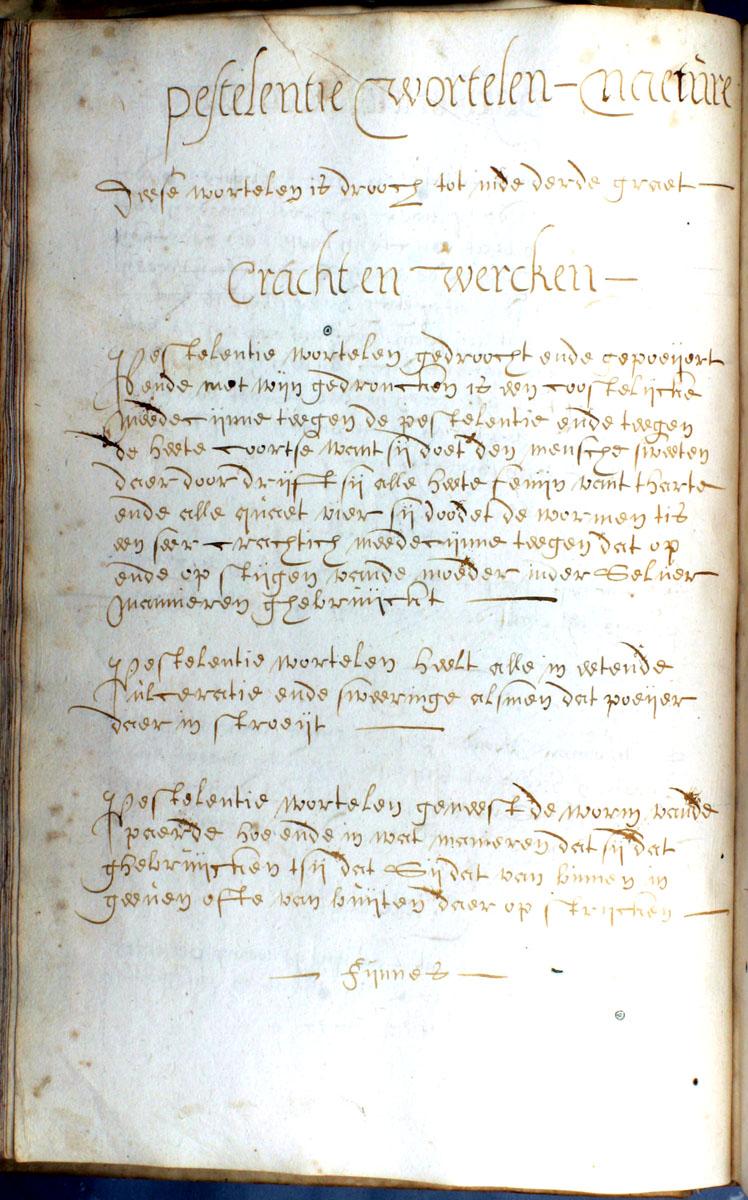 Pestelentie wortelen – Naeture
Deese wortelen is drooch tot inde derde graet –
Cracht en wercken –
Pestelentie wortelen gedroocht ende gepoeijert
ende met wijn gedroncken is een coostelijcke
meedecijnne teegen de pestelentie ende teegen
de heete coortse want sij doet den mensche sweeten
daer door drijft sij alle heete fenijn vant tharte
ende alle quaet vier sij doodet de wormen tis
een seer crachtich meedecijnne teegen dat op
ende op stijgen vande moeder inder selver
mannieren ghebruijckt —
Pestelentie wortelen heelt alle in eetende
ulceratie ende sweeringe alsmen dat poeijer
daer in stroeijt —
Pestelentie wortelen geneest de worm vande
paerde hoe ende in wat manieren dat sij dat
ghebruijcken tsij dat sij dat van binnen in
geeven ofte van buijten daer op strijcken —
— Fijnnes —